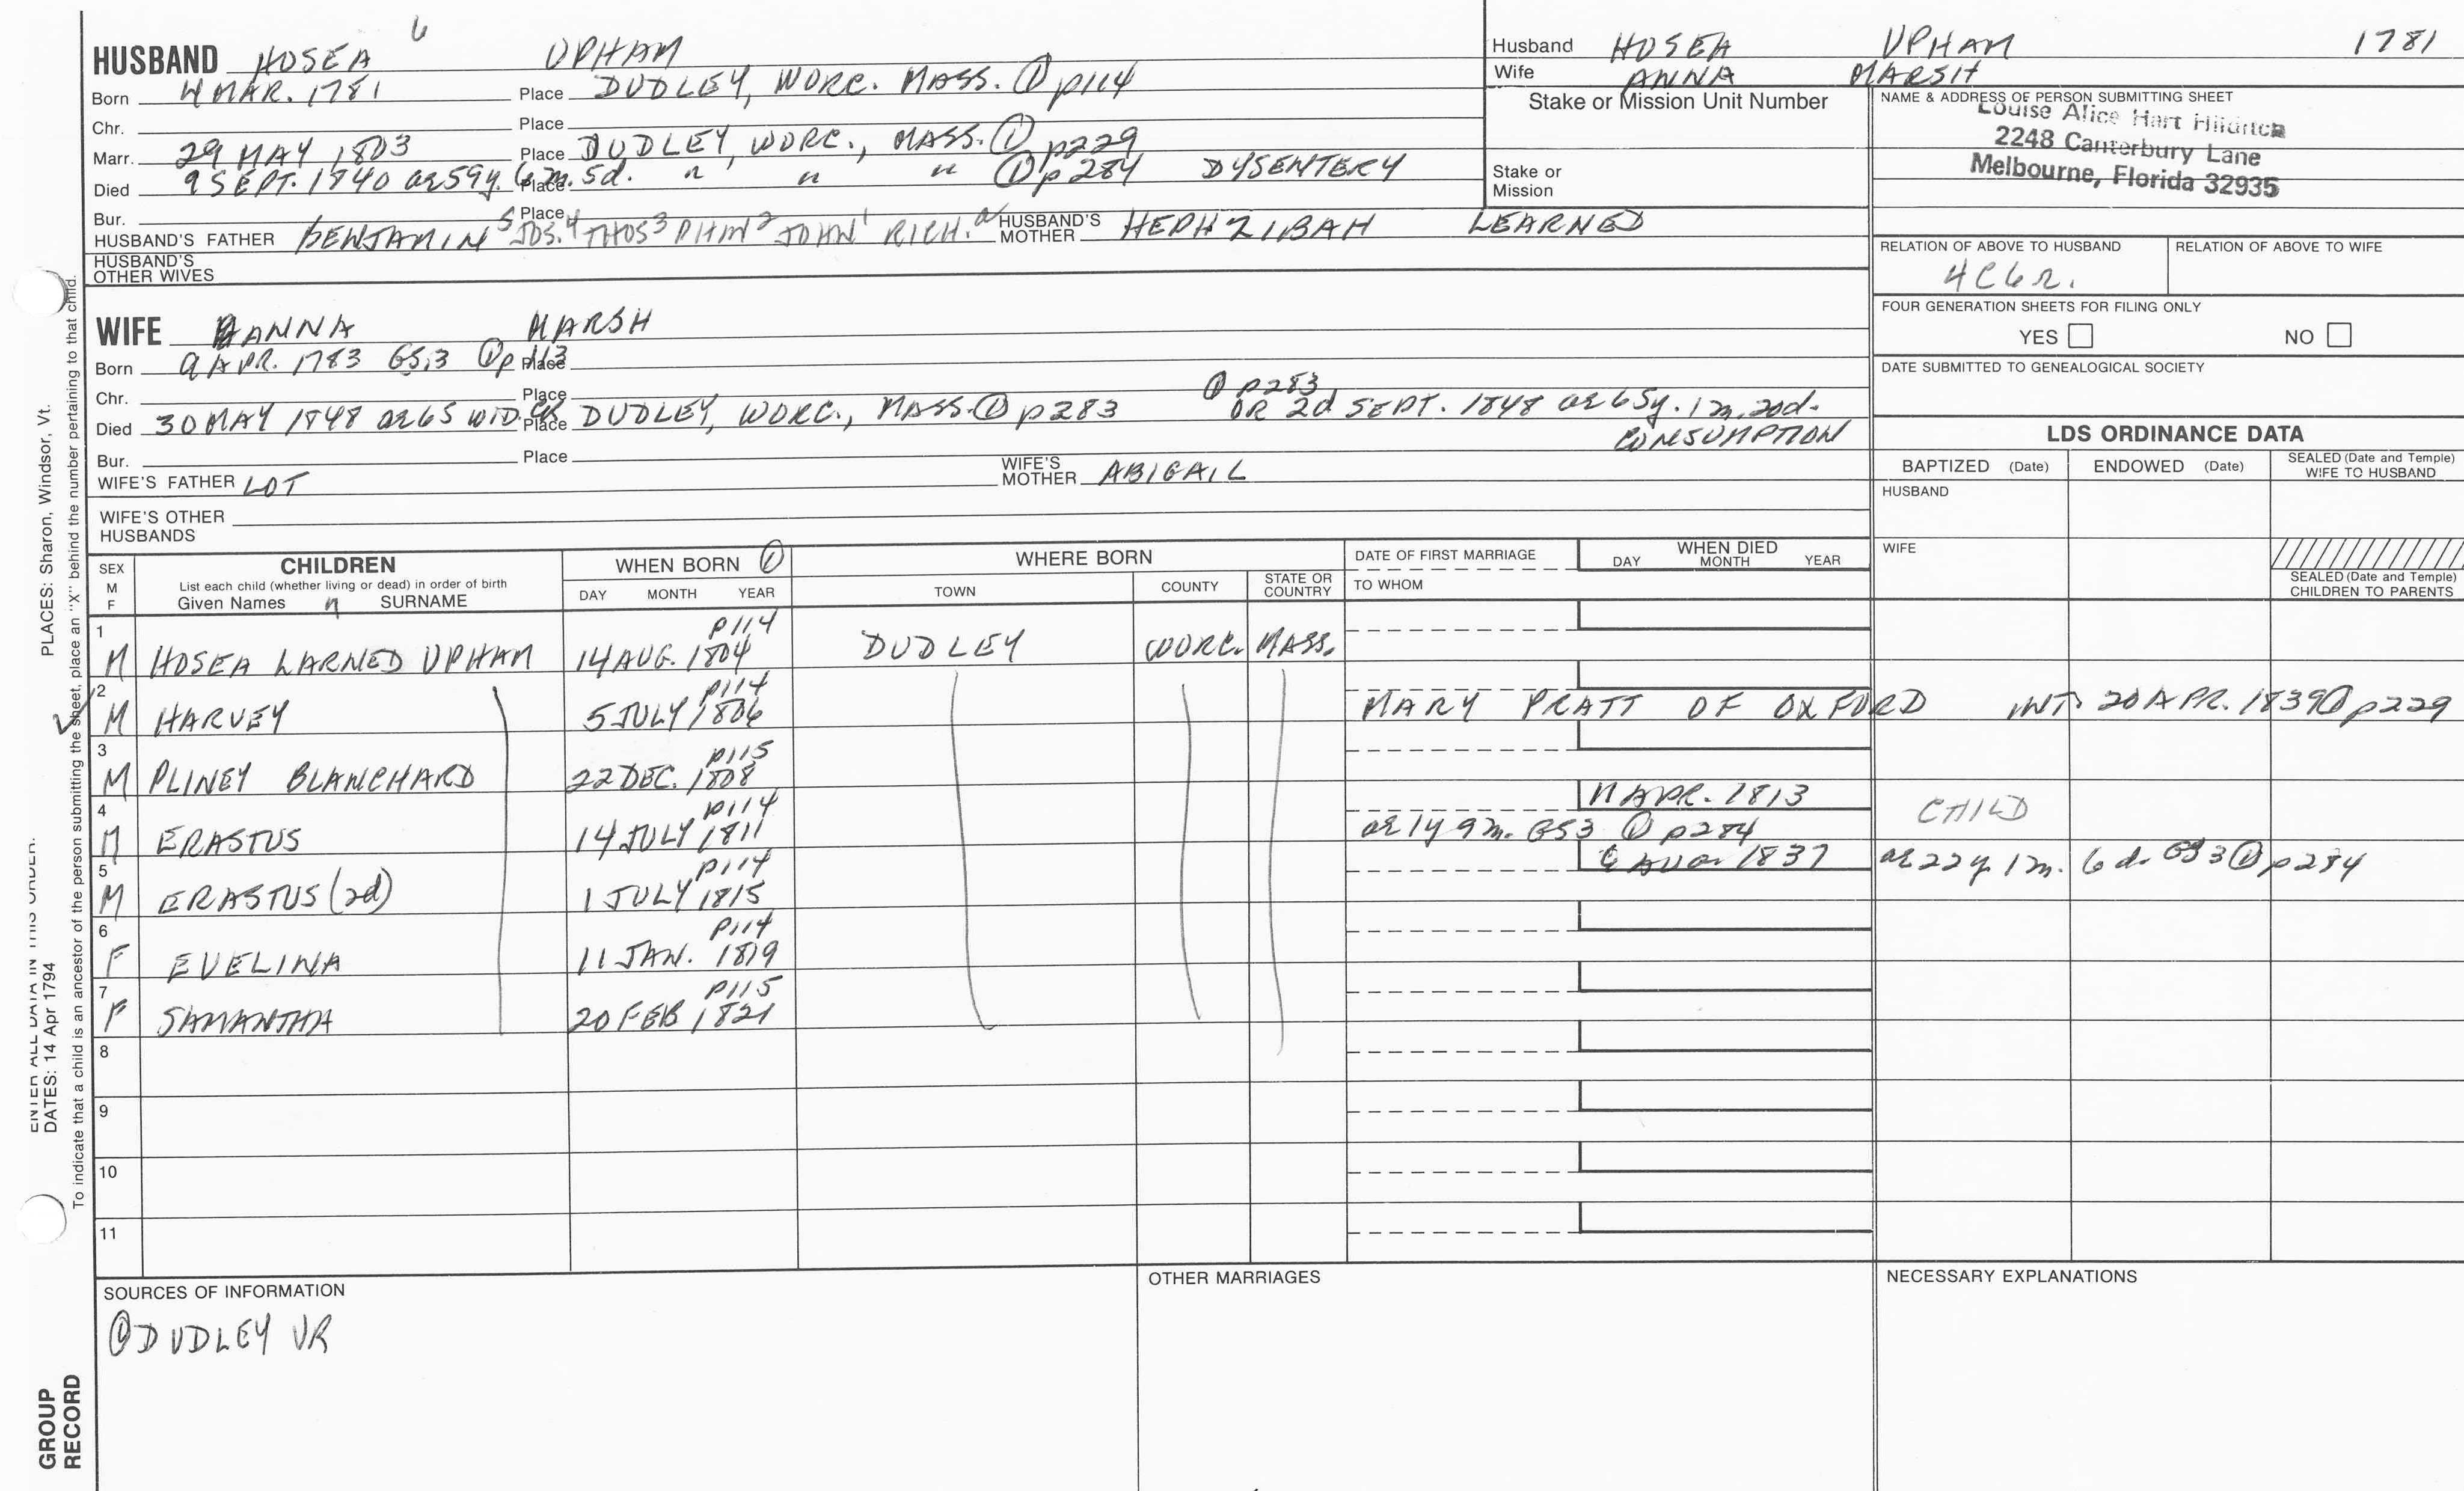 HUSBAND HOSEA 6 UPHAM
Born 4 MAR. 1781 Place DUDLEY, WORC. MASS. ① p114
Chr. Place
Marr. 29 MAY 1803 Place DUDLEY, WORC., MASS. ① p229
Died 9 SEPT. 1840 ae 59y. 6 m. 5d. Place " " " ① p 284 DYSENTERY
Bur. Place
HUSBAND'S FATHER BENJAMIN 5 JOS. 4 THOS 3 PHIN 2 JOHN 1 RICH. a HUSBAND'S MOTHER HEPHZIBAH LEARNED
HUSBAND'S OTHER WIVES
WIFE ANNA MARSH
Born 9 APR. 1783 GS,3 ① p 113 Place
Chr. Place
① p283
Died 30 MAY 1848 ae 65 WID. Place DUDLEY, WORC., MASS. ① p 283 OR 2d SEPT. 1848 ae 65y. 1 m. 20d.
CONSUMPTION
Bur. Place
WIFE'S FATHER LOT WIFE'S MOTHER ABIGAIL
WIFE'S OTHER HUSBANDS
Husband HOSEA UPHAM 1781
Wife ANNA MARSH
Stake or Mission Unit Number
Stake or Mission
NAME & ADDRESS OF PERSON SUBMITTING SHEET
Louise Alice Hart
2248 Canterbury Lane
Melbourne, Florida 32935
RELATION OF ABOVE TO HUSBAND RELATION OF ABOVE TO WIFE
4C6R.
FOUR GENERATION SHEETS FOR FILING ONLY
YES NO
DATE SUBMITTED TO GENEALOGICAL SOCIETY
LDS ORDINANCE DATA
BAPTIZED (Date) ENDOWED (Date) SEALED (Date and Temple) WIFE TO HUSBAND
HUSBAND
WIFE
SEALED (Date and Temple) CHILDREN TO PARENTS
SEX M F
CHILDREN
List each child (whether living or dead) in order of birth
Given Names SURNAME
WHEN BORN ①
DAY MONTH YEAR
WHERE BORN
TOWN COUNTY STATE OR COUNTRY
DATE OF FIRST MARRIAGE
TO WHOM
WHEN DIED
DAY MONTH YEAR
1 p114
M HOSEA LARNED UPHAM 14 AUG. 1804 DUDLEY WORC. MASS.
2 p114
M HARVEY 5 JULY 1806 MARY PRATT OF OXFORD INT. 20 APR. 1839 ① p229
3 p115
M PLINEY BLANCHARD 22 DEC. 1808
4 p114 11 APR. 1813 CHILD
M ERASTUS 14 JULY 1811 ae 1y 9 m. GS3 ① p284
5 p114 1837 ae 22y 1 m. 6 d. GS 3 ① p 284
M ERASTUS (2d) 1 JULY 1815
6 p114
F EVELINA 11 JAN. 1819
7 p115
F SAMANTHA 20 FEB 1821
8
9
10
11
SOURCES OF INFORMATION
① DUDLEY VR
OTHER MARRIAGES
NECESSARY EXPLANATIONS
PLACES: Sharon, Windsor, Vt.
DATES: 14 Apr 1794
To indicate that a child is an ancestor of the person submitting the sheet, place an "X" behind the number pertaining to that child.
GROUP
RECORD